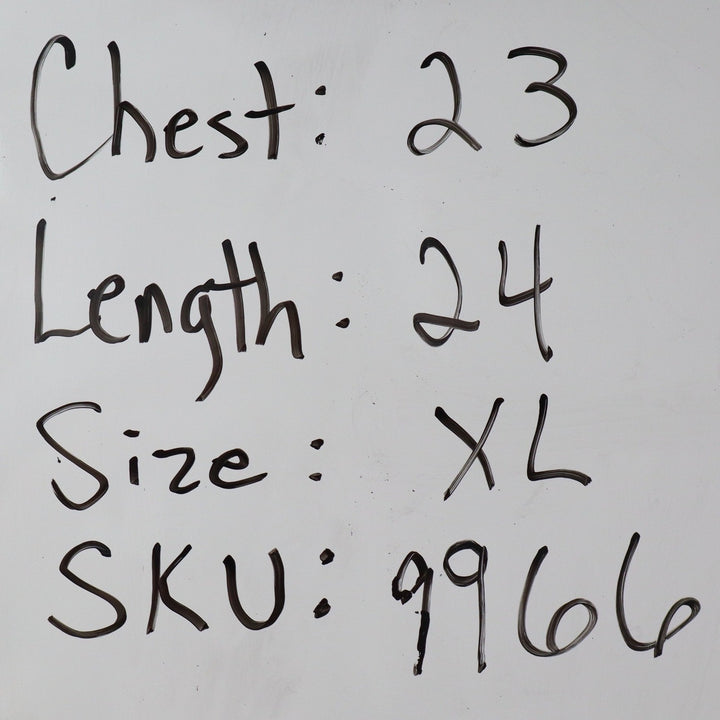 Chest: 23
Length: 24
Size: XL
SKU: 9966